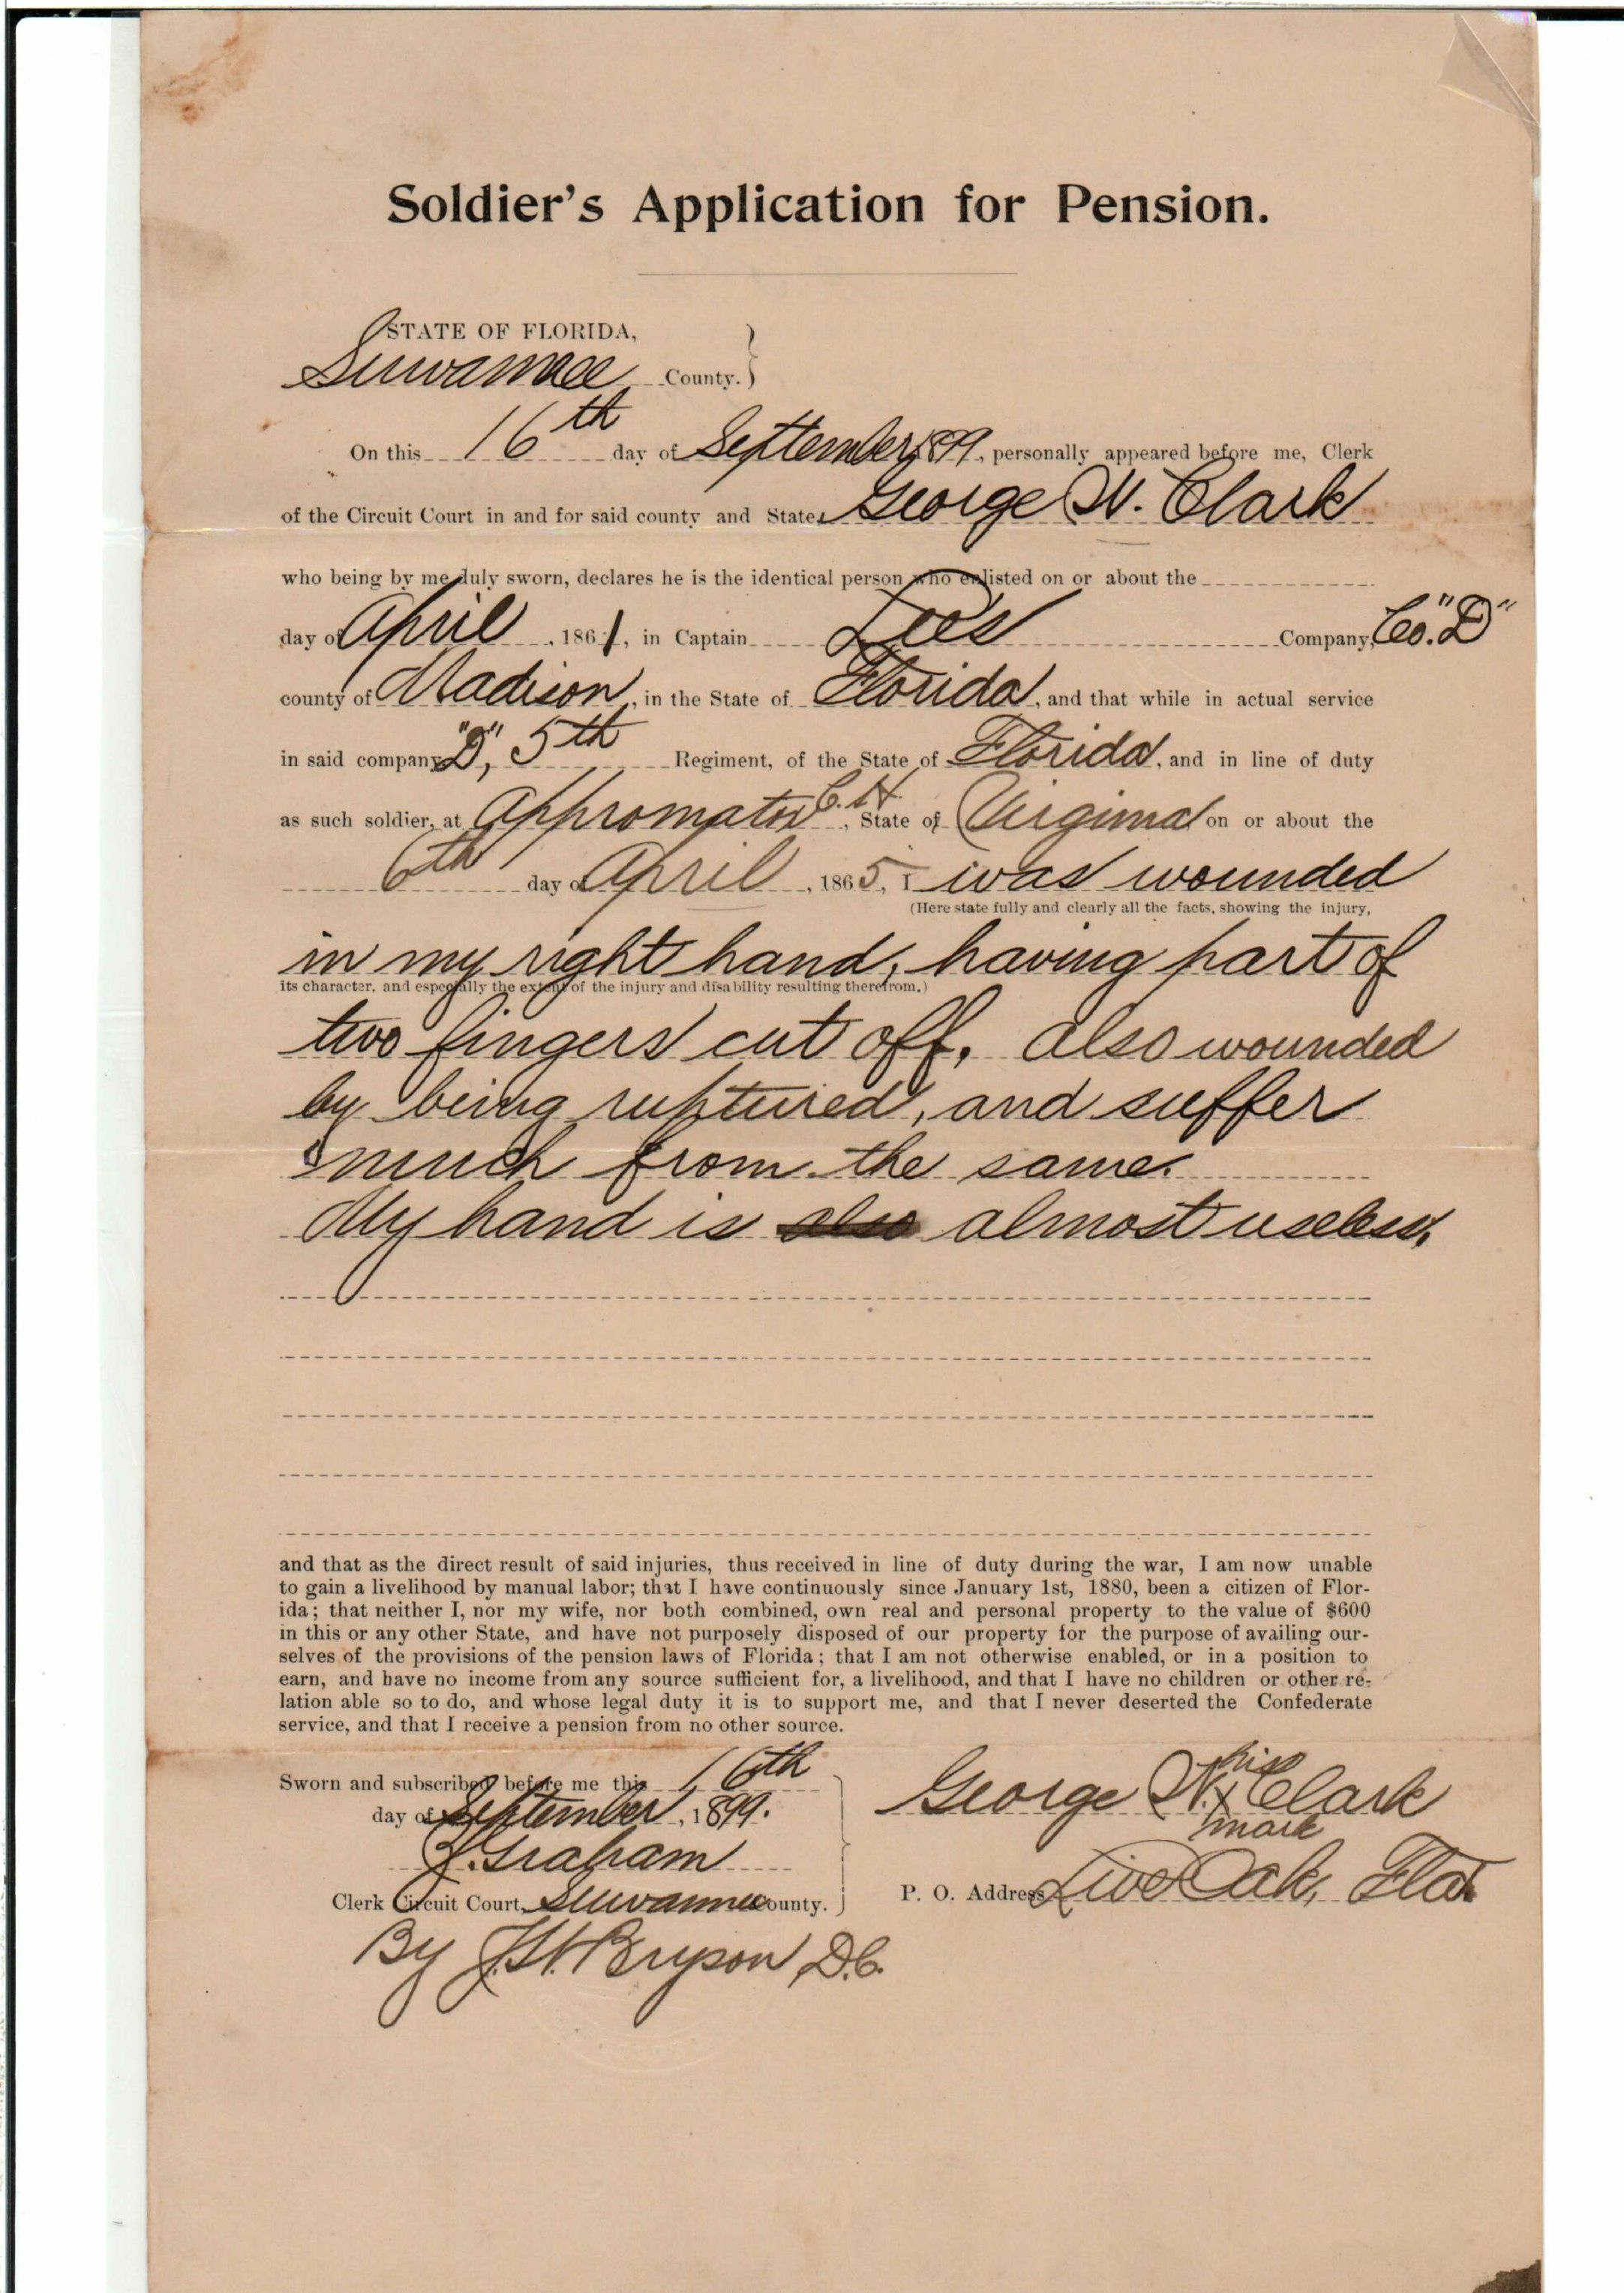 Soldier's Application for Pension.
STATE OF FLORIDA,
Suwannee County.
On this 16th day of September 1899, personally appeared before me, Clerk
of the Circuit Court in and for said county and State, George W. Clark
who being by me duly sworn, declares he is the identical person who enlisted on or about the
day of April, 1861, in Captain Lee's Company, Co. "D"
county of Madison, in the State of Florida, and that while in actual service
in said company "D", 5th Regiment, of the State of Florida, and in line of duty
as such soldier, at Appromatox C. H., State of Virginia on or about the
6th day of April, 1865, I was wounded
(Here state fully and clearly all the facts, showing the injury,
in my right hand, having part of
its character, and especially the extent of the injury and disability resulting therefrom.)
two fingers cut off. Also wounded
by being ruptured, and suffer
much from the same.
My hand is also almost useless.
and that as the direct result of said injuries, thus received in line of duty during the war, I am now unable
to gain a livelihood by manual labor; that I have continuously since January 1st, 1880, been a citizen of Flor-
ida; that neither I, nor my wife, nor both combined, own real and personal property to the value of $600
in this or any other State, and have not purposely disposed of our property for the purpose of availing our-
selves of the provisions of the pension laws of Florida; that I am not otherwise enabled, or in a position to
earn, and have no income from any source sufficient for, a livelihood, and that I have no children or other re-
lation able so to do, and whose legal duty it is to support me, and that I never deserted the Confederate
service, and that I receive a pension from no other source.
Sworn and subscribed before me this 16th
day of September, 1899.
Graham
Clerk Circuit Court, Suwannee County.
By J.W. Bryson, D.C.
his
George W. x Clark
mark
P. O. Address Live Oak, Fla.